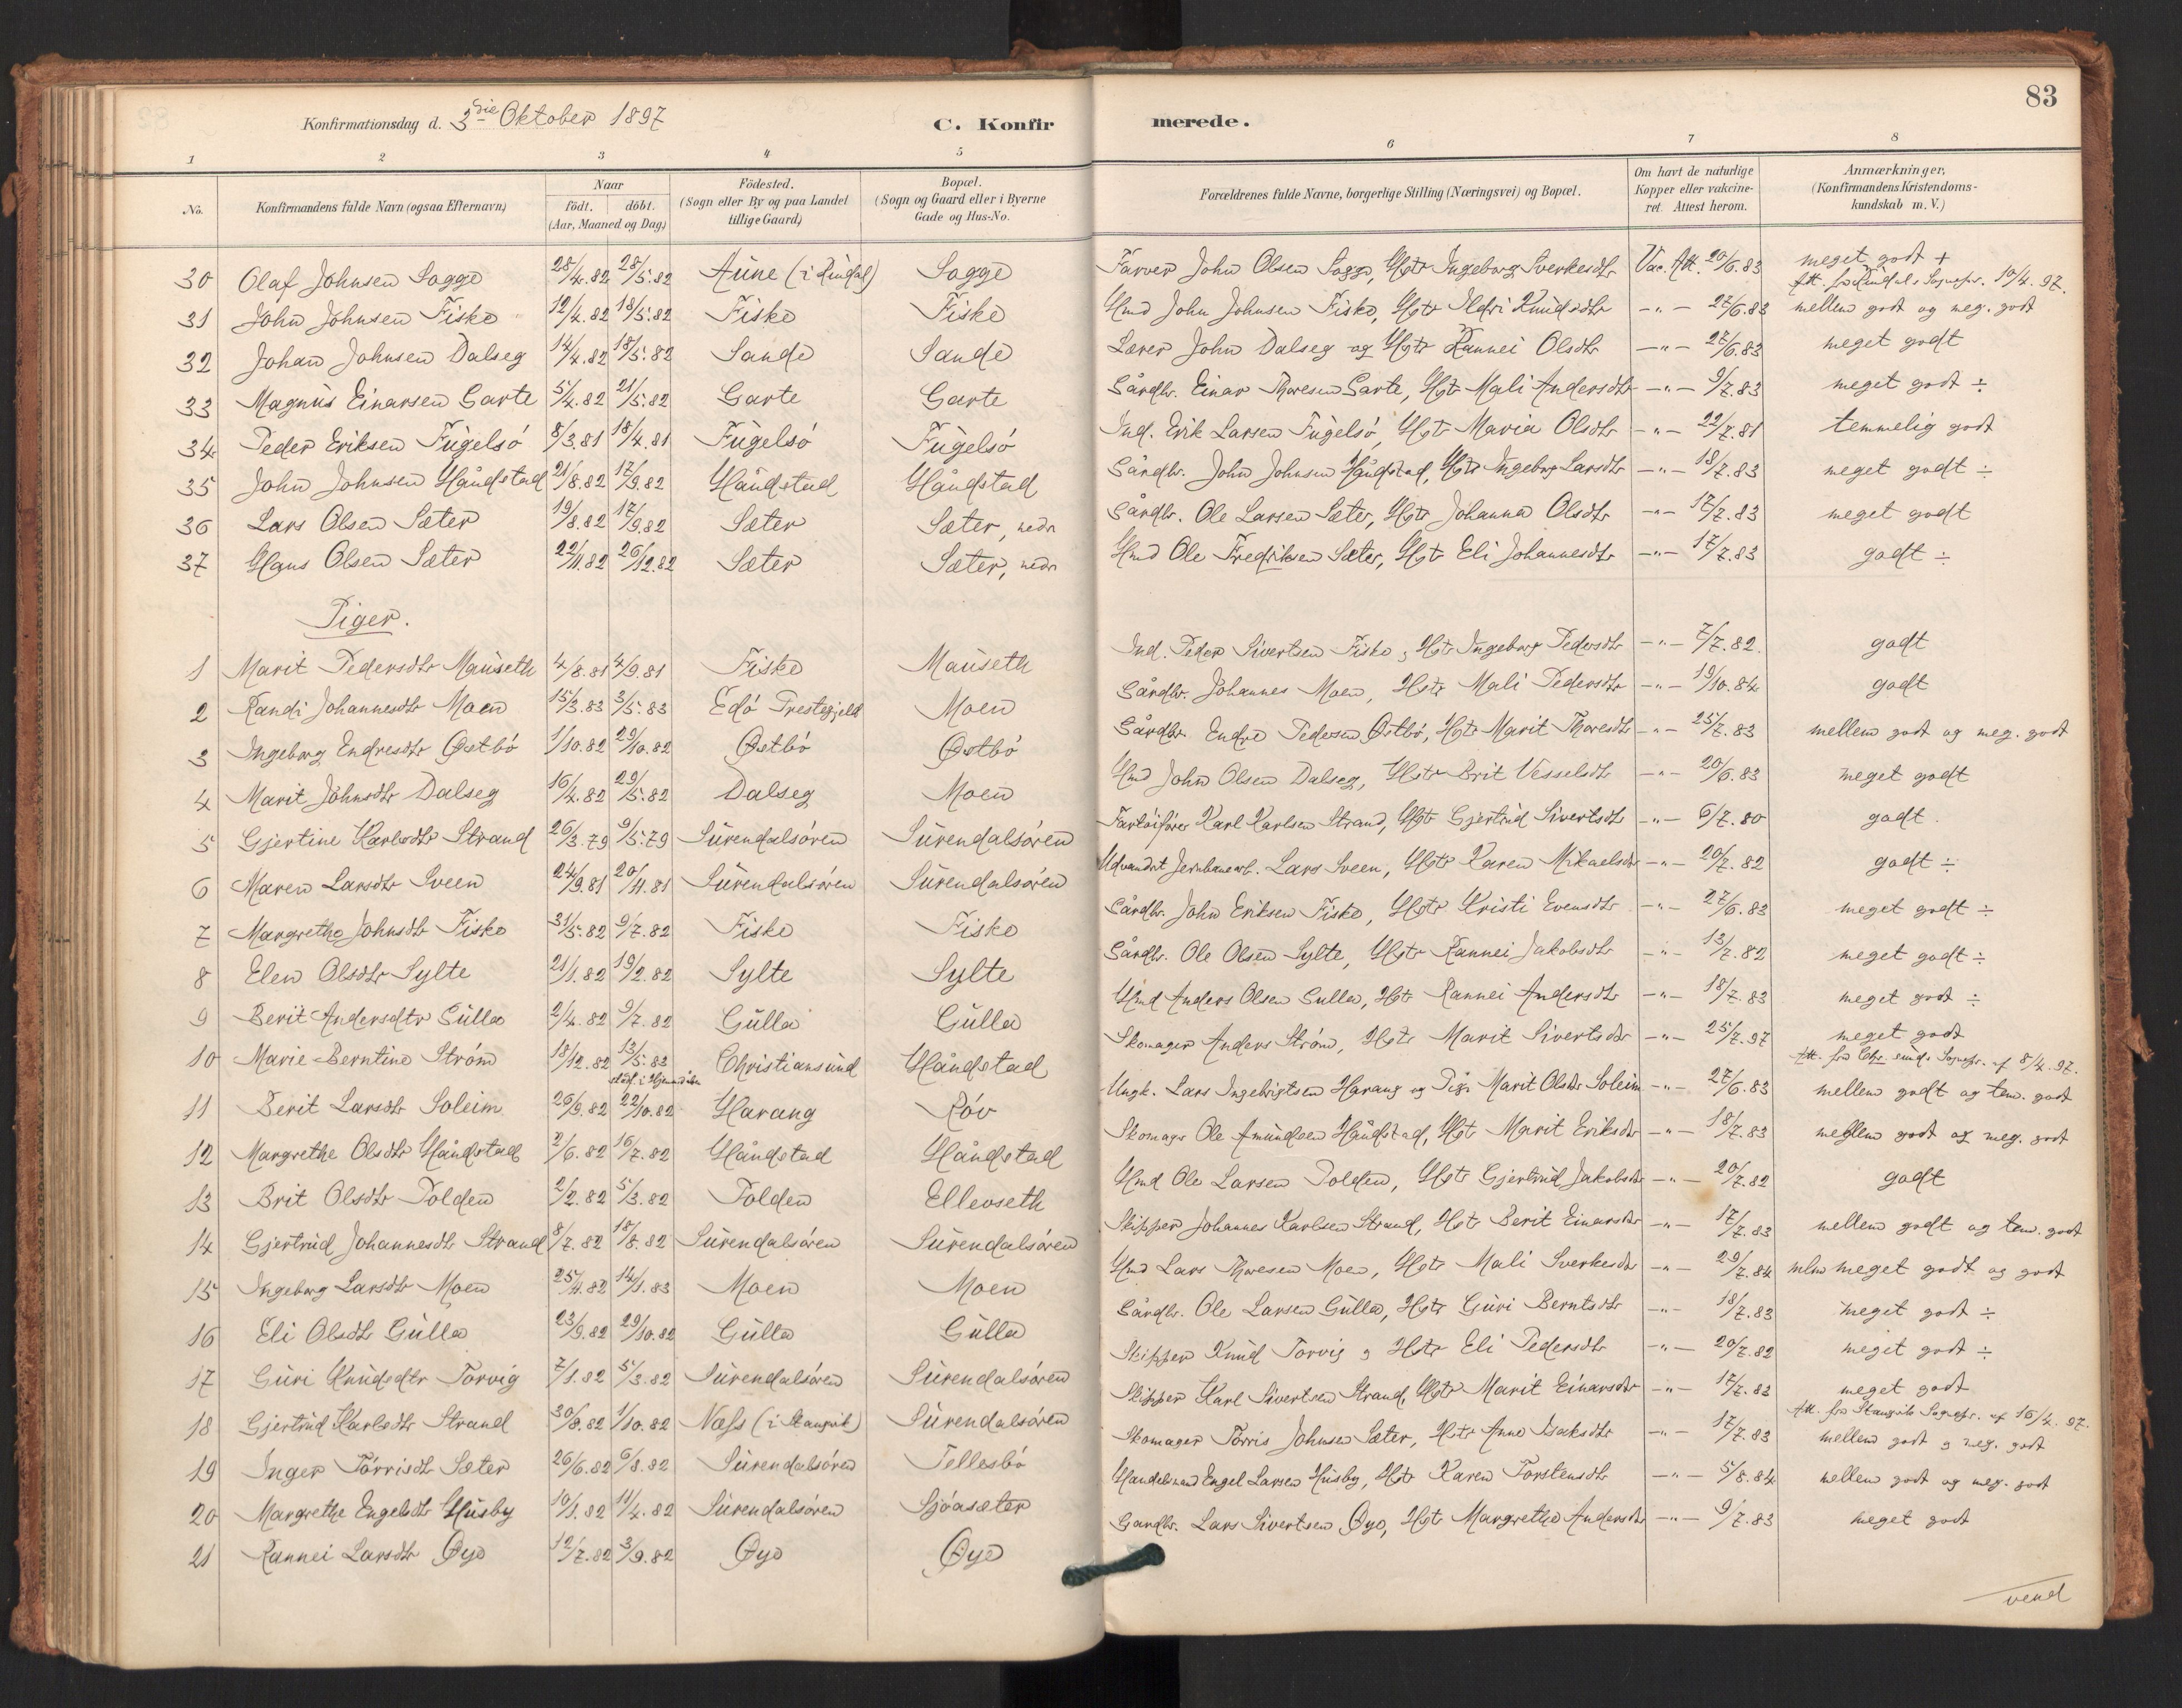 83
Konfirmationsdag d. 3die Oktober 1897 C. Konfirmerede.
1 2 3 4 5 6 7 8
No. Konfirmandens fulde Navn (ogsaa Efternavn) Naar födt. döbt. (Aar, Maaned og Dag) Födested. (Sogn eller By og paa Landet tillige Gaard) Bopæl. (Sogn og Gaard eller i Byerne Gade og Hus-No. Forældrenes fulde Navne, borgerlige Stilling (Næringsvei) og Bopæl. Om havt de naturlige Kopper eller vakcineret. Attest herom. Anmærkninger, (Konfirmandens Kristendomskundskab m. V.)
30 Olaf Johnsen Sogge 28/4.82 28/5.82 Aune (i Rindal) Sogge Farver John Olsen Sogge, Hstr Ingeborg Sverkesdtr Vac. Att. 20/6.83 meget godt + Att. fra Rindals Sognepr. 10/4.97.
31 John Johnsen Fiske 12/4.82 18/5.82 Fiske Fiske Hmd John Johnsen Fiske, Hstr Ildri Knudsdtr -"- 27/6.83 mellem godt og meg. godt
32 Johan Johnsen Dalseg 14/4.82 18/5.82 Sande Sande Lærer John Dalseg og Hstr Rannei Olsdtr -"- 27/6.83 meget godt
33 Magnus Einarsen Garte 5/4.82 21/5.82 Garte Garte Gårdbr. Einar Thoresen Garte, Hstr Mali Andersdtr -"- 9/7.83 meget godt ÷
34 Peder Eriksen Fugelsö 8/3.81 18/4.81 Fugelsö Fugelsö Ind. Erik Larsen Fugelsö, Hstr Maria Olsdtr -"- 22/7.81 temmelig godt
35 John Johnsen Håndstad 21/8.82 17/9.82 Håndstad Håndstad Gårdbr. John Johnsen Håndstad, Hstr Ingeborg Larsdtr -"- 18/7.83 meget godt ÷
36 Lars Olsen Sæter 19/8.82 17/9.82 Sæter Sæter, nedr Gårdbr. Ole Larsen Sæter, Hstr Johanna Olsdtr -"- 17/7.83 meget godt
37 Hans Olsen Sæter 22/11.82 26/12.82 Sæter Sæter, nedr Hmd Ole Fredriksen Sæter, Hstr Eli Johannesdtr -"- 17/7.83 godt ÷
Piger.
1 Marit Pedersdtr Mauseth 4/8.81 4/9.81 Fiske Mauseth Ind. Peder Sivertsen Fiske, Hstr Ingeborg Pedersdtr -"- 7/7.82. godt
2 Randi Johannesdtr Moen 15/3.83 3/5.83 Edö Prestegjeld Moen Gårdbr. Johannes Moen, Hstr Mali Pedersdtr -"- 19/10.84 godt
3 Ingeborg Endresdtr Østbö 1/10.82 29/10.82 Østbö Østbö Gårdbr. Endre Pedersen Østbö, Hstr Marit Thoresdtr -"- 25/7.83 mellem godt og meg. godt
4 Marit Johnsdtr Dalseg 16/4.82 29/5.82 Dalseg Moen Hmd John Olsen Dalseg, Hstr Brit Vesselsdtr -"- 20/6.83 meget godt
5 Gjertine Karlsdtr Strand 26/3.79 9/5.79 Surendalsören Surendalsören Fartöifører Karl Karlsen Strand, Hstr Gjertrud Sivertsdtr -"- 6/7.80 godt.
6 Maren Larsdtr Sveen 24/9.81 20/11.81 Surendalsören Surendalsören Udvandret Jernbanearb. Lars Sveen, Hstr Karen Mikaelsdtr -"- 20/7.82 godt ÷
7 Margrethe Johnsdtr Fiske 31/5.82 9/7.82 Fiske Fiske Gårdbr. John Eriksen Fiske, Hstr Kristi Evensdtr -"- 27/6.83 meget godt ÷
8 Elen Olsdtr Sylte 21/1.82 19/2.82 Sylte Sylte Gårdbr. Ole Olsen Sylte, Hstr Rannei Jakobsdtr -"- 13/7.82 meget godt ÷
9 Berit Andersdtr Gulla 2/4.82 9/7.82 Gulla Gulla Hmd Anders Olsen Gulla, Hstr Rannei Andersdtr -"- 18/7.83 meget godt ÷
10 Marie Berntine Ström 18/12.82 13/5.83 Christiansund Håndstad Skomager Anders Ström, Hstr Marit Sivertsdtr -"- 25/7.97 meget godt Att. fra Chr.sunds Sognepr. af 8/4.97.
11 Berit Larsdtr Soleim 26/9.82 22/10.82 Harang Röv Ungk. Lars Ingebrigtsen Harang og Pige Marit Olsdtr Soleim -"- 27/6.83 mellem godt og tem. godt
12 Margrethe Olsdtr Håndstad 2/6.82 16/7.82 Håndstad Håndstad Skomager Ole Amundsen Håndstad, Hstr Marit Eriksdtr -"- 18/7.83 mellem godt og meg. godt
13 Brit Olsdtr Polden 2/2.82 5/3.82 Polden Ellevseth Hmd Ole Larsen Polden, Hstr Gjertrud Jakobsdtr -"- 20/7.82 godt
14 Gjertrud Johannesdtr Strand 8/7.82 18/8.82 Surendalsören Surendalsören Skipper Johannes Karlsen Strand, Hstr Berit Einarsdtr -"- 17/7.83 mellem godt og tem. godt
15 Ingeborg Larsdtr Moen 25/11.82 14/1.83 Moen Moen Hmd Lars Thoresen Moen, Hstr Mali Sverkesdtr -"- 29/7.84 mlm meget godt og godt
16 Eli Olsdtr Gulla 23/9.82 29/10.82 Gulla Gulla Gårdbr. Ole Larsen Gulla, Hstr Guri Berntsdtr -"- 18/7.83 meget godt ÷
17 Guri Knudsdtr Torvig 7/1.82 5/3.82 Surendalsören Surendalsören Skipper Knud Torvig og Hstr Eli Pedersdtr -"- 20/7.82 meget godt ÷
18 Gjertrud Karlsdtr Strand 30/8.82 1/10.82 Næss (i Stangvik) Surendalsören Skipper Karl Sivertsen Strand, Hstr Marit Einarsdtr -"- 17/7.83 meget godt Att. fra Stangviks Sognepr. af 16/4.97.
19 Inger Törrisdtr Sæter 26/6.82 6/8.82 Surendalsören Tellesbö Skomager Törris Johnsen Sæter, Hstr Anne Isaksdtr -"- 17/7.83 mellem godt og meg. godt
20 Margrethe Engelsdtr Husby 10/1.82 11/4.82 Surendalsören Sjöasæter Handelsmand Engel Larsen Husby, Hstr Karen Torstensdtr -"- 5/8.84 mellem godt og meg. godt
21 Rannei Larsdtr Øye 12/7.82 3/9.82 Øye Øye Gardbr. Lars Sivertsen Øye, Hstr Margrethe Andersdtr -"- 9/7.83 meget godt
vend